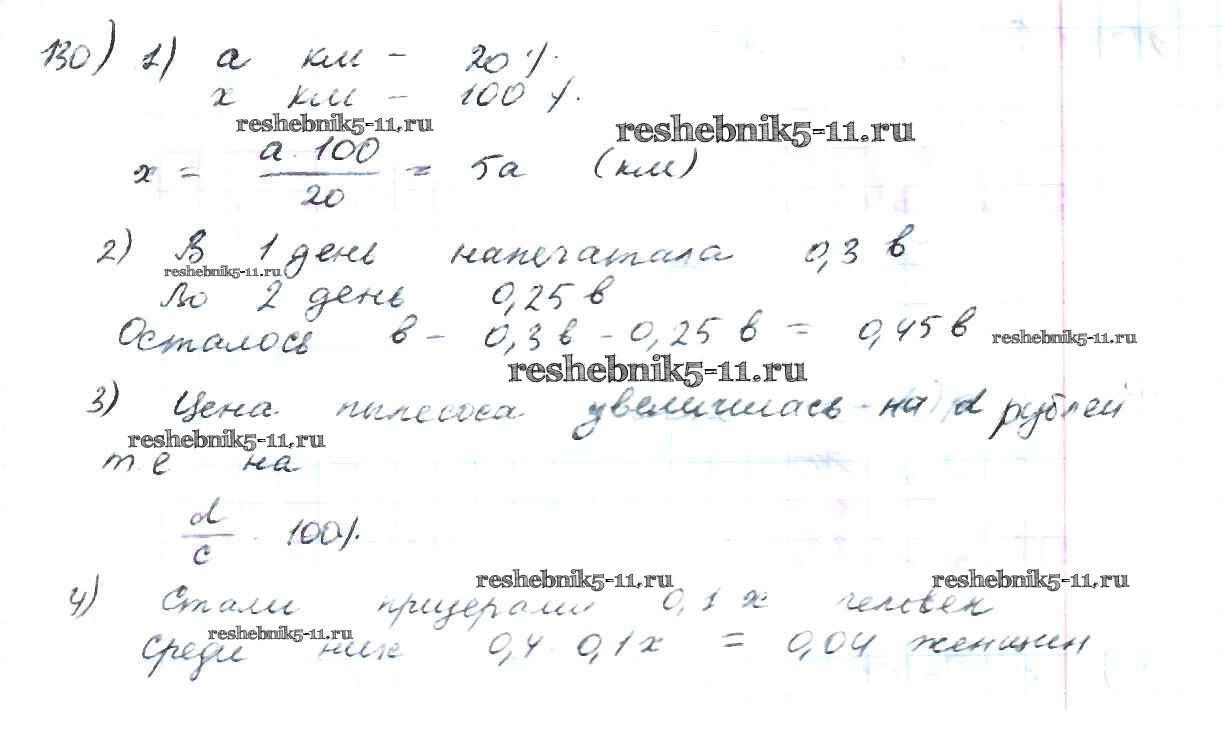 130) 1) а км - 20%
х км - 100%
reshebnik5-11.ru
reshebnik5-11.ru
х = а · 100 / 20 = 5а (км)
2) В 1 день напечатала 0,3 в
reshebnik5-11.ru
Во 2 день 0,25 в
Осталось в - 0,3 в - 0,25 в = 0,45 в
reshebnik5-11.ru
reshebnik5-11.ru
3) Цена пылесоса увеличилась на d рублей
reshebnik5-11.ru
т.е на
d / c · 100%
reshebnik5-11.ru
reshebnik5-11.ru
4) Стали призерами 0,1 х человек
reshebnik5-11.ru
среди них 0,4 · 0,1х = 0,04 женщин